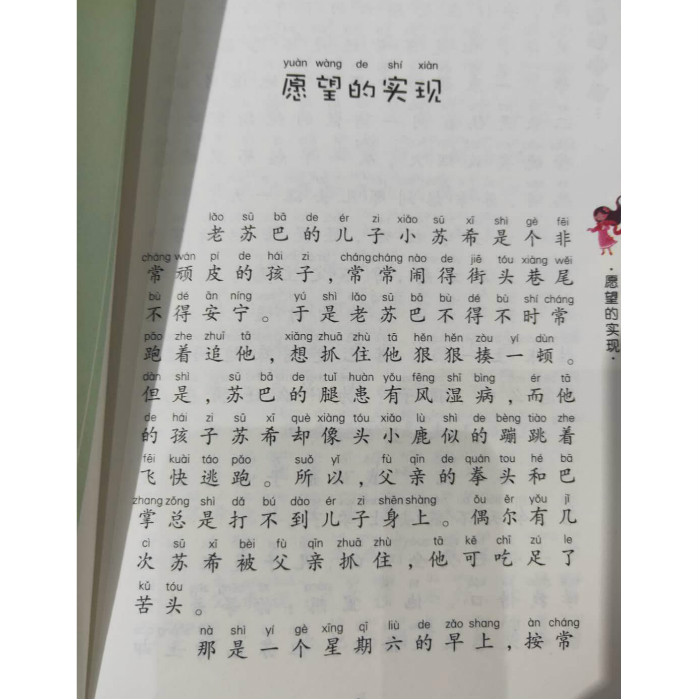 yuàn wàng de shí xiàn
愿望的实现
lǎo sū bā de ér zi xiǎo sū xī shì gè fēi
老苏巴的儿子小苏希是个非
cháng wán pí de hái zi chángcháng nào de jiē tóu xiàng wěi
常顽皮的孩子，常常闹得街头巷尾
bù dé ān níng yú shì lǎo sū bā bù dé bù shí cháng
不得安宁。于是老苏巴不得不时常
pǎo zhe zhuī tā xiǎng zhuā zhù tā hěn hěn zòu yí dùn
跑着追他，想抓住他狠狠揍一顿。
dàn shì sū bā de tuǐ huàn yǒu fēng shī bìng ér tā
但是，苏巴的腿患有风湿病，而他
de hái zi sū xī què xiàng tóu xiǎo lù shì de bèng tiào zhe
的孩子苏希却像头小鹿似的蹦跳着
fēi kuài táo pǎo suǒ yǐ fù qīn de quán tou hé bā
飞快逃跑。所以，父亲的拳头和巴
zhang zǒng shì dǎ bú dào ér zi shēn shàng ǒu ěr yǒu jǐ
掌总是打不到儿子身上。偶尔有几
cì sū xī bèi fù qīn zhuā zhù tā kě chī zú le
次苏希被父亲抓住，他可吃足了
kǔ tóu
苦头。
nà shì yí gè xīng qī liù de zǎo shang àn cháng
那是一个星期六的早上，按常
·愿望的实现·